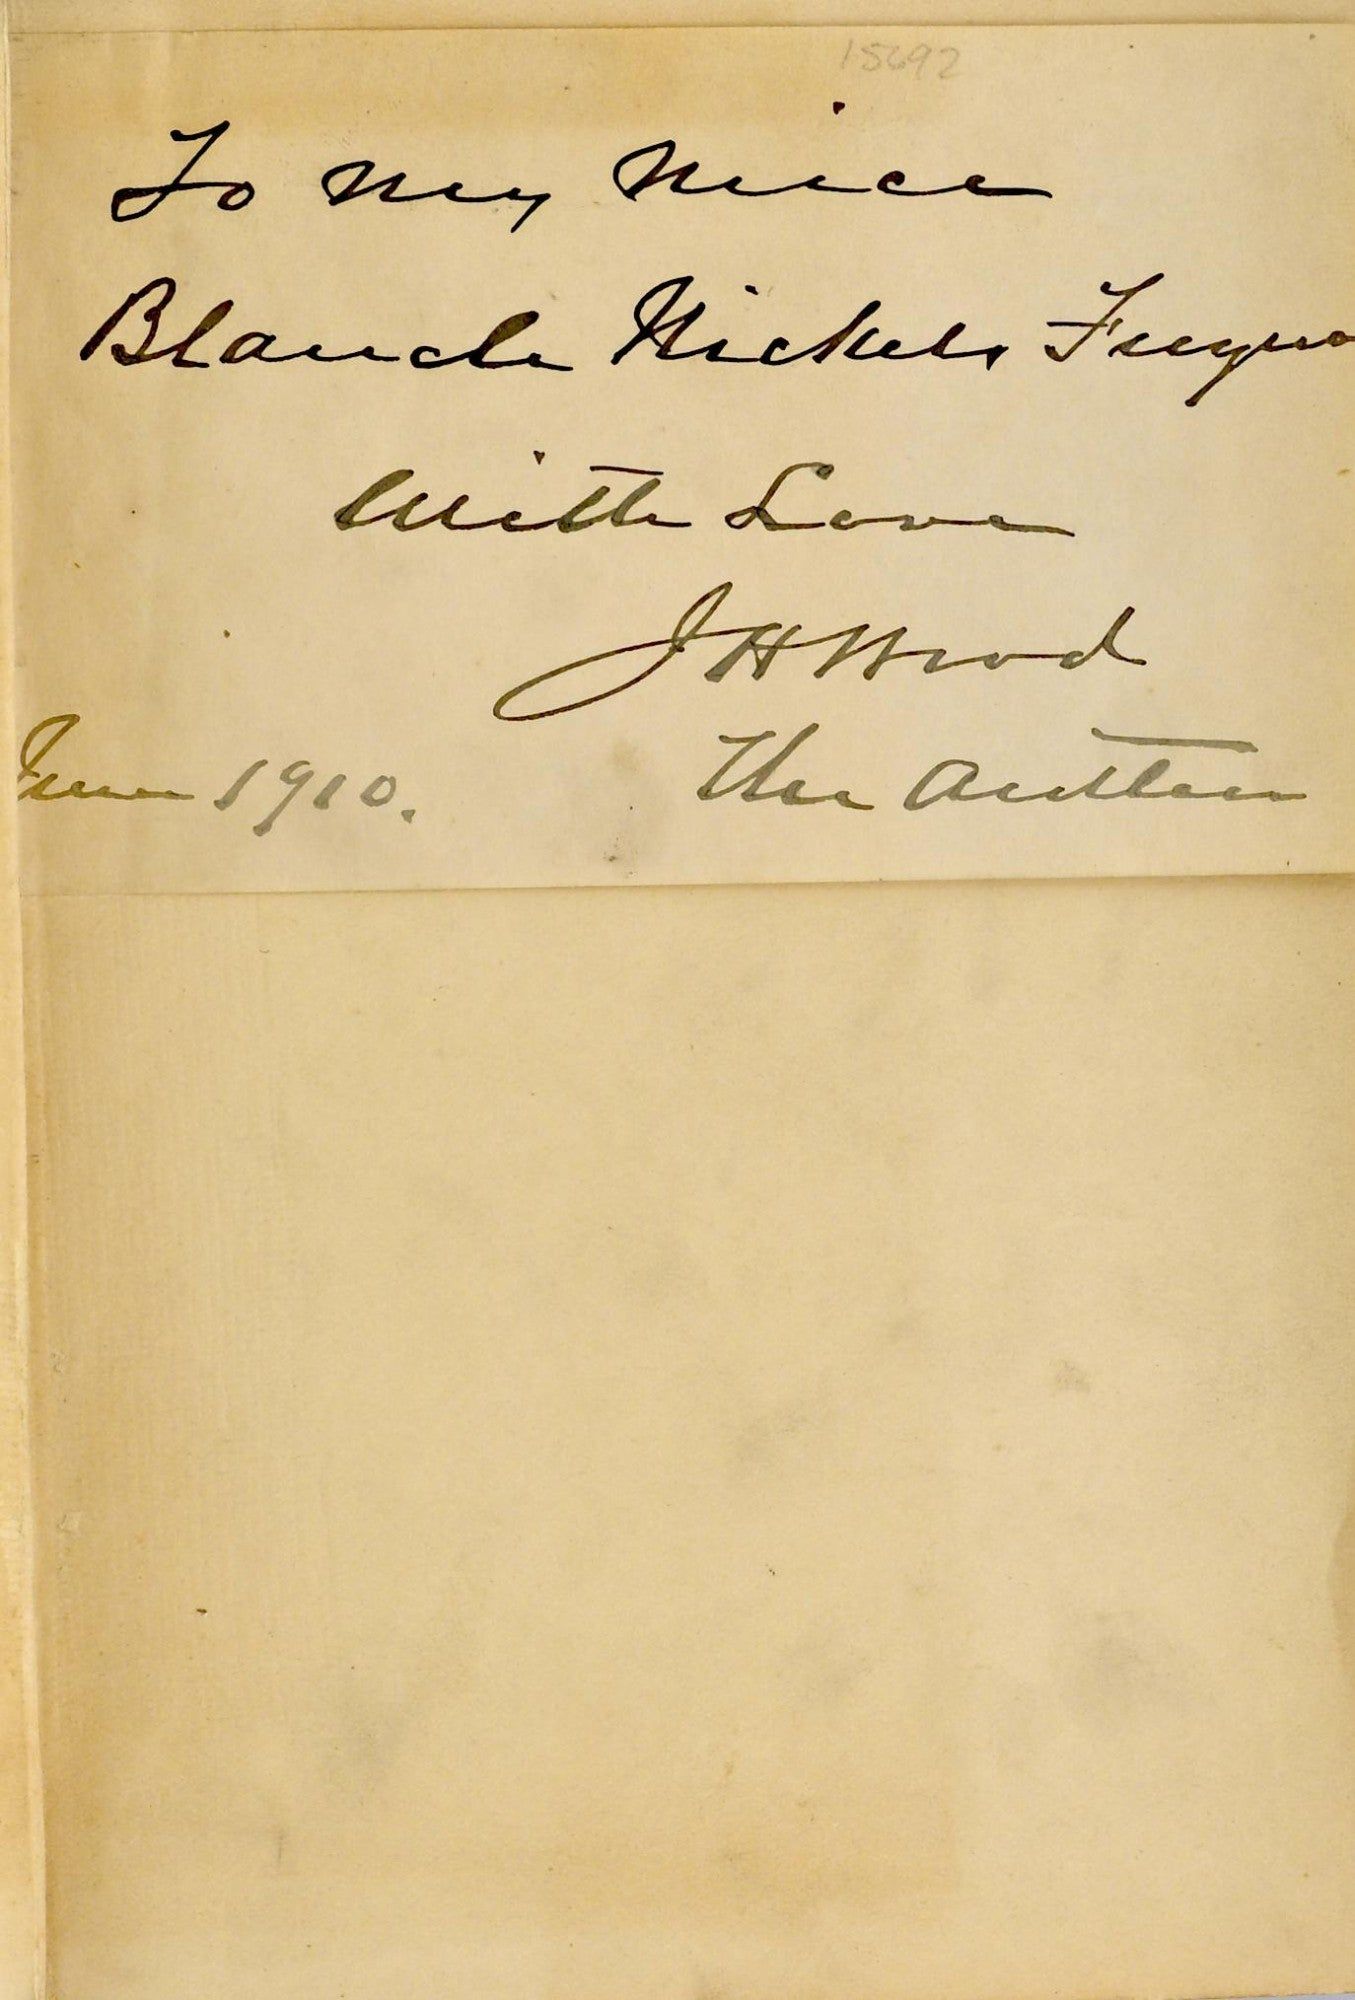 15692
To my niece
Blanche Nickels
With Love
J H Wood
June 1910.
The Author